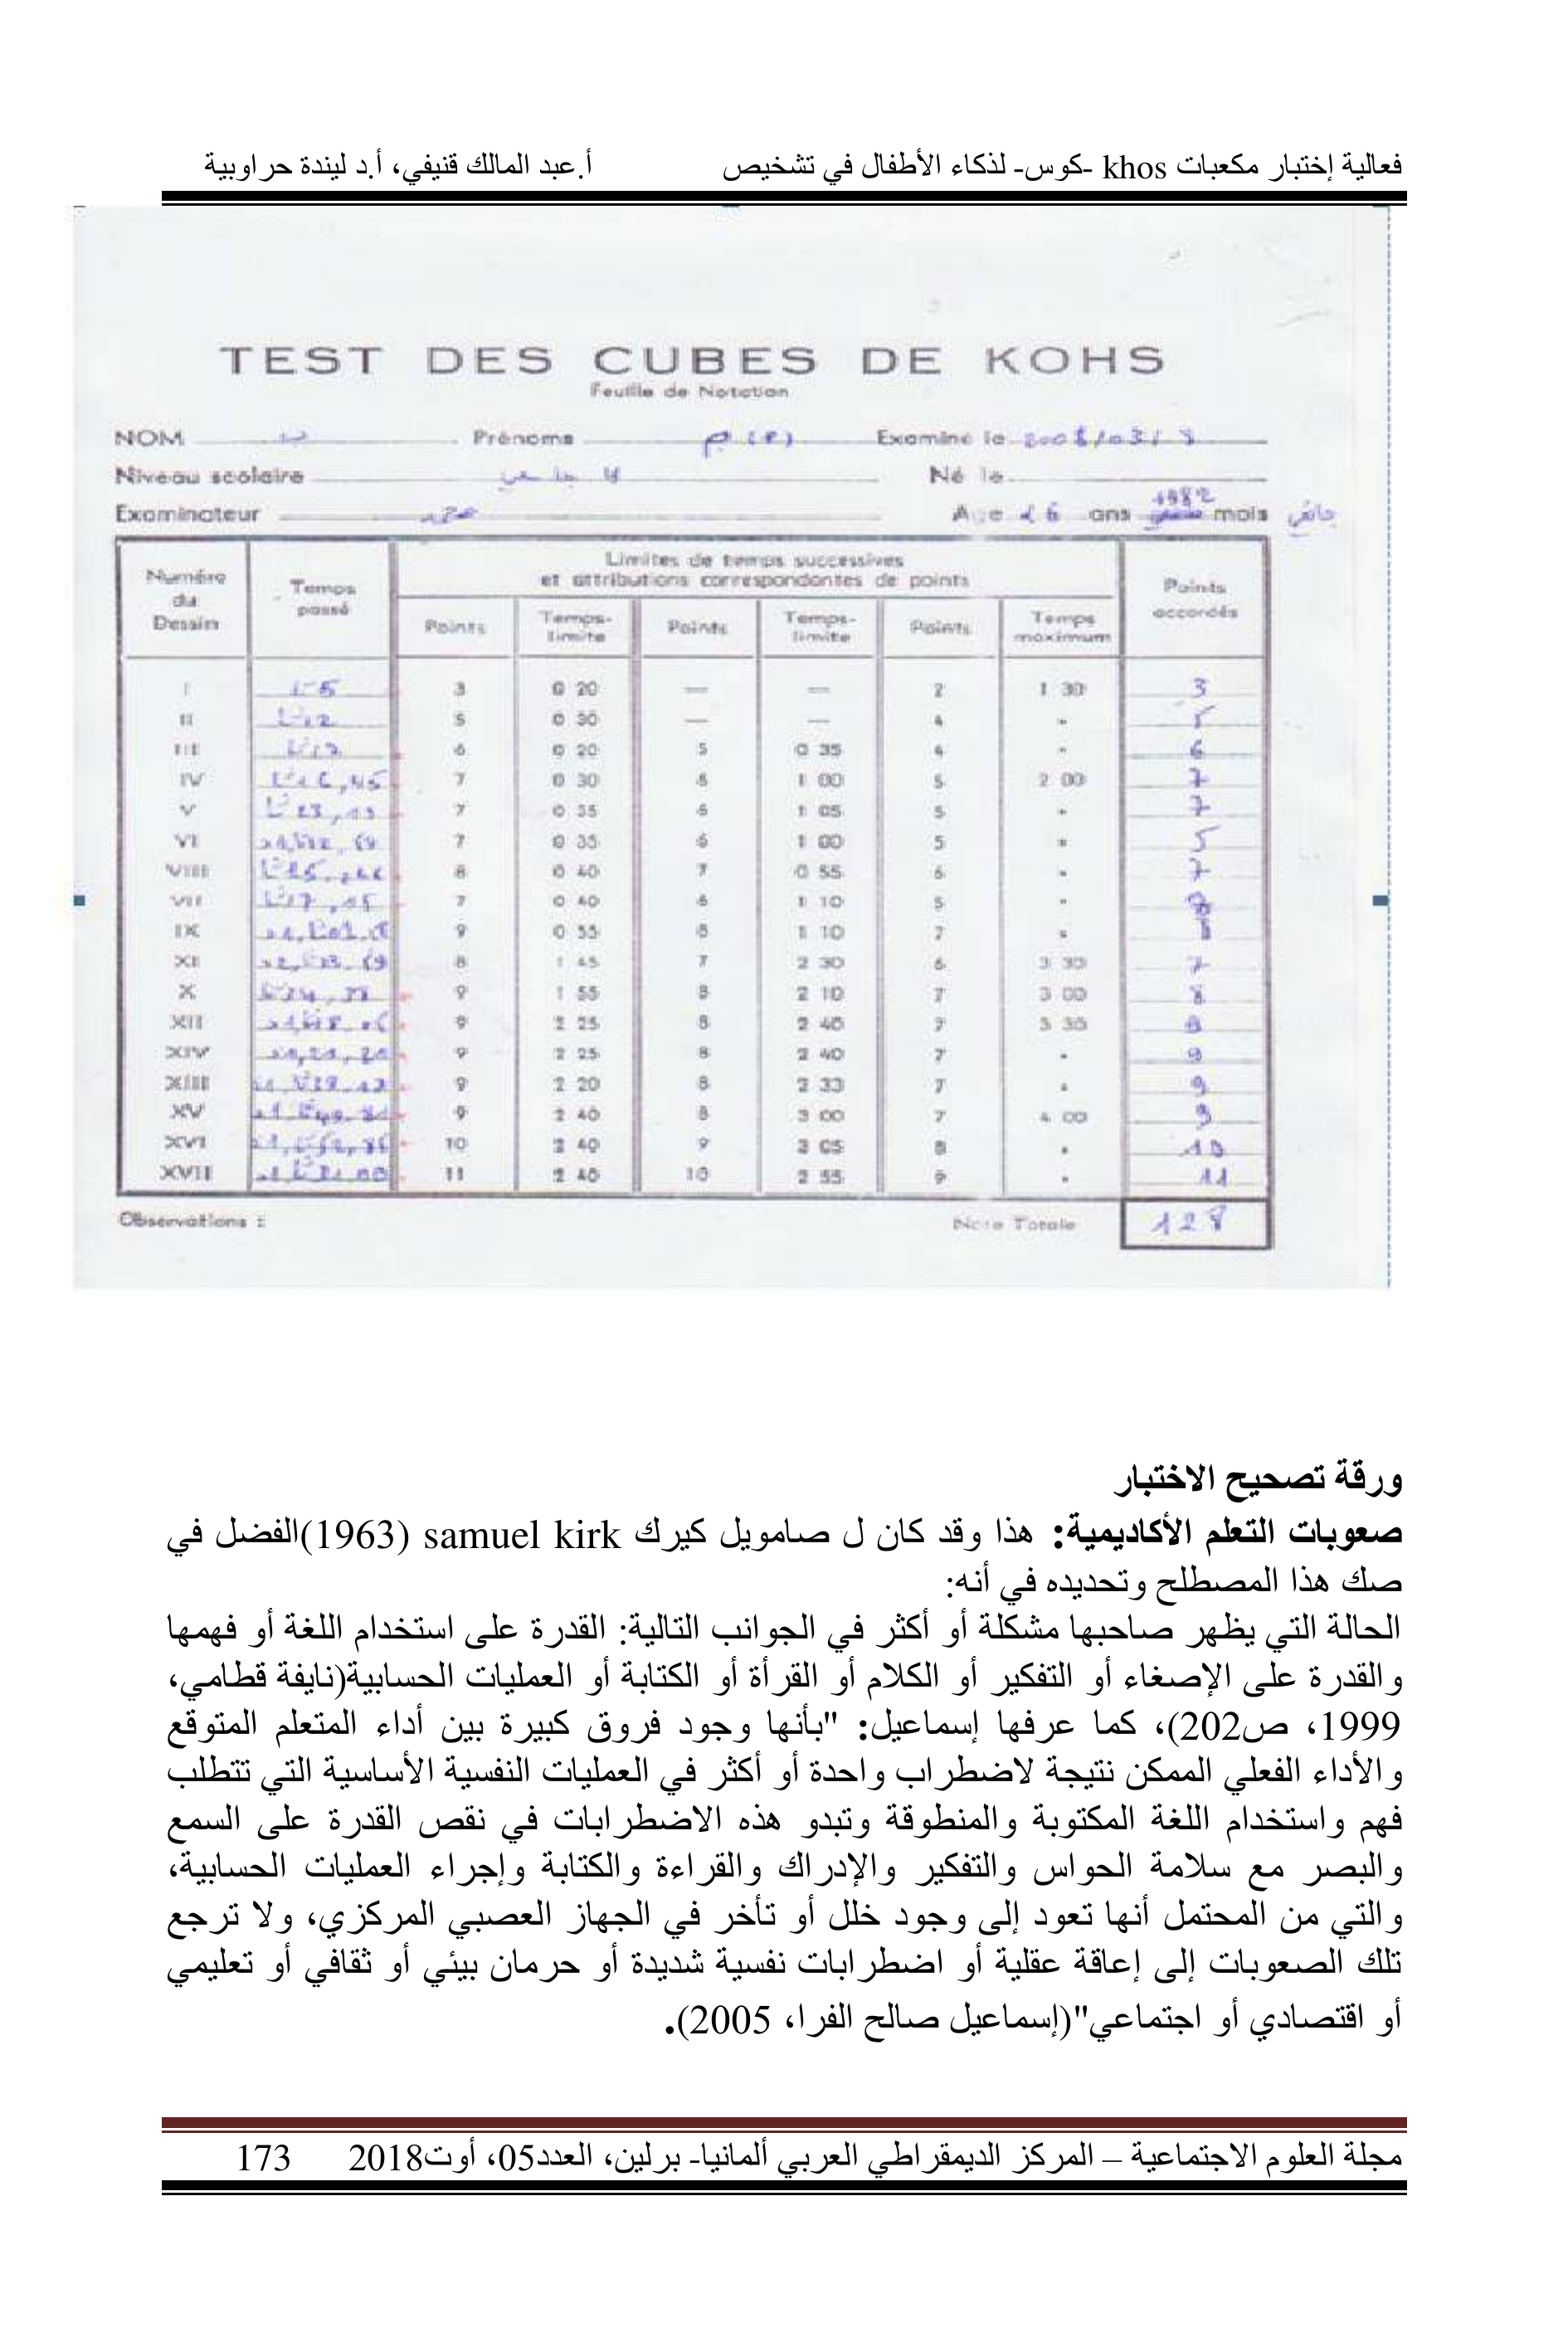 فعالية إختبار مكعبات khos -كوس- لذكاء الأطفال في تشخيص أ.عبد المالك قنيفي، أ.د ليندة حراوبية
TEST DES CUBES DE KOHS
Feuille de Notation
NOM Prénoms Examiné le
Niveau scolaire Né le
Examinateur Age 26 ans 1982 mois
Limites de temps successives
et attributions correspondantes de points
Numéro du Dessin Temps passé Points Temps-limite Points Temps-limite Points Temps maximum Points accordés
I 3 0 20 — — 2 1 30 3
II 5 0 30 — — 4 " 5
III 6 0 20 5 0 35 4 " 6
IV 7 0 30 6 1 00 5 2 00 7
V 7 0 35 6 1 05 5 " 7
VI 7 0 35 6 1 00 5 " 5
VIII 8 0 40 7 0 55 6 " 7
VII 7 0 40 6 1 10 5 "
IX 9 0 55 8 1 10 7 " 8
XI 8 1 45 7 2 30 6 3 30 7
X 9 1 55 8 2 10 7 3 00 8
XII 9 2 25 8 2 40 7 3 30
XIV 9 2 25 8 2 40 7 " 9
XIII 9 2 20 8 2 33 7 " 9
XV 9 2 40 8 3 00 7 4 00 9
XVI 10 2 40 9 3 05 8 " 10
XVII 11 2 40 10 2 55 9 " 11
Observations : Note Totale 128
ورقة تصحيح الاختبار
صعوبات التعلم الأكاديمية: هذا وقد كان ل صامويل كيرك samuel kirk (1963)الفضل في
صك هذا المصطلح وتحديده في أنه:
الحالة التي يظهر صاحبها مشكلة أو أكثر في الجوانب التالية: القدرة على استخدام اللغة أو فهمها
والقدرة على الإصغاء أو التفكير أو الكلام أو القرأة أو الكتابة أو العمليات الحسابية(نايفة قطامي،
1999، ص202)، كما عرفها إسماعيل: "بأنها وجود فروق كبيرة بين أداء المتعلم المتوقع
والأداء الفعلي الممكن نتيجة لاضطراب واحدة أو أكثر في العمليات النفسية الأساسية التي تتطلب
فهم واستخدام اللغة المكتوبة والمنطوقة وتبدو هذه الاضطرابات في نقص القدرة على السمع
والبصر مع سلامة الحواس والتفكير والإدراك والقراءة والكتابة وإجراء العمليات الحسابية،
والتي من المحتمل أنها تعود إلى وجود خلل أو تأخر في الجهاز العصبي المركزي، ولا ترجع
تلك الصعوبات إلى إعاقة عقلية أو اضطرابات نفسية شديدة أو حرمان بيئي أو ثقافي أو تعليمي
أو اقتصادي أو اجتماعي"(إسماعيل صالح الفرا، 2005).
مجلة العلوم الاجتماعية – المركز الديمقراطي العربي ألمانيا- برلين، العدد05، أوت2018 173